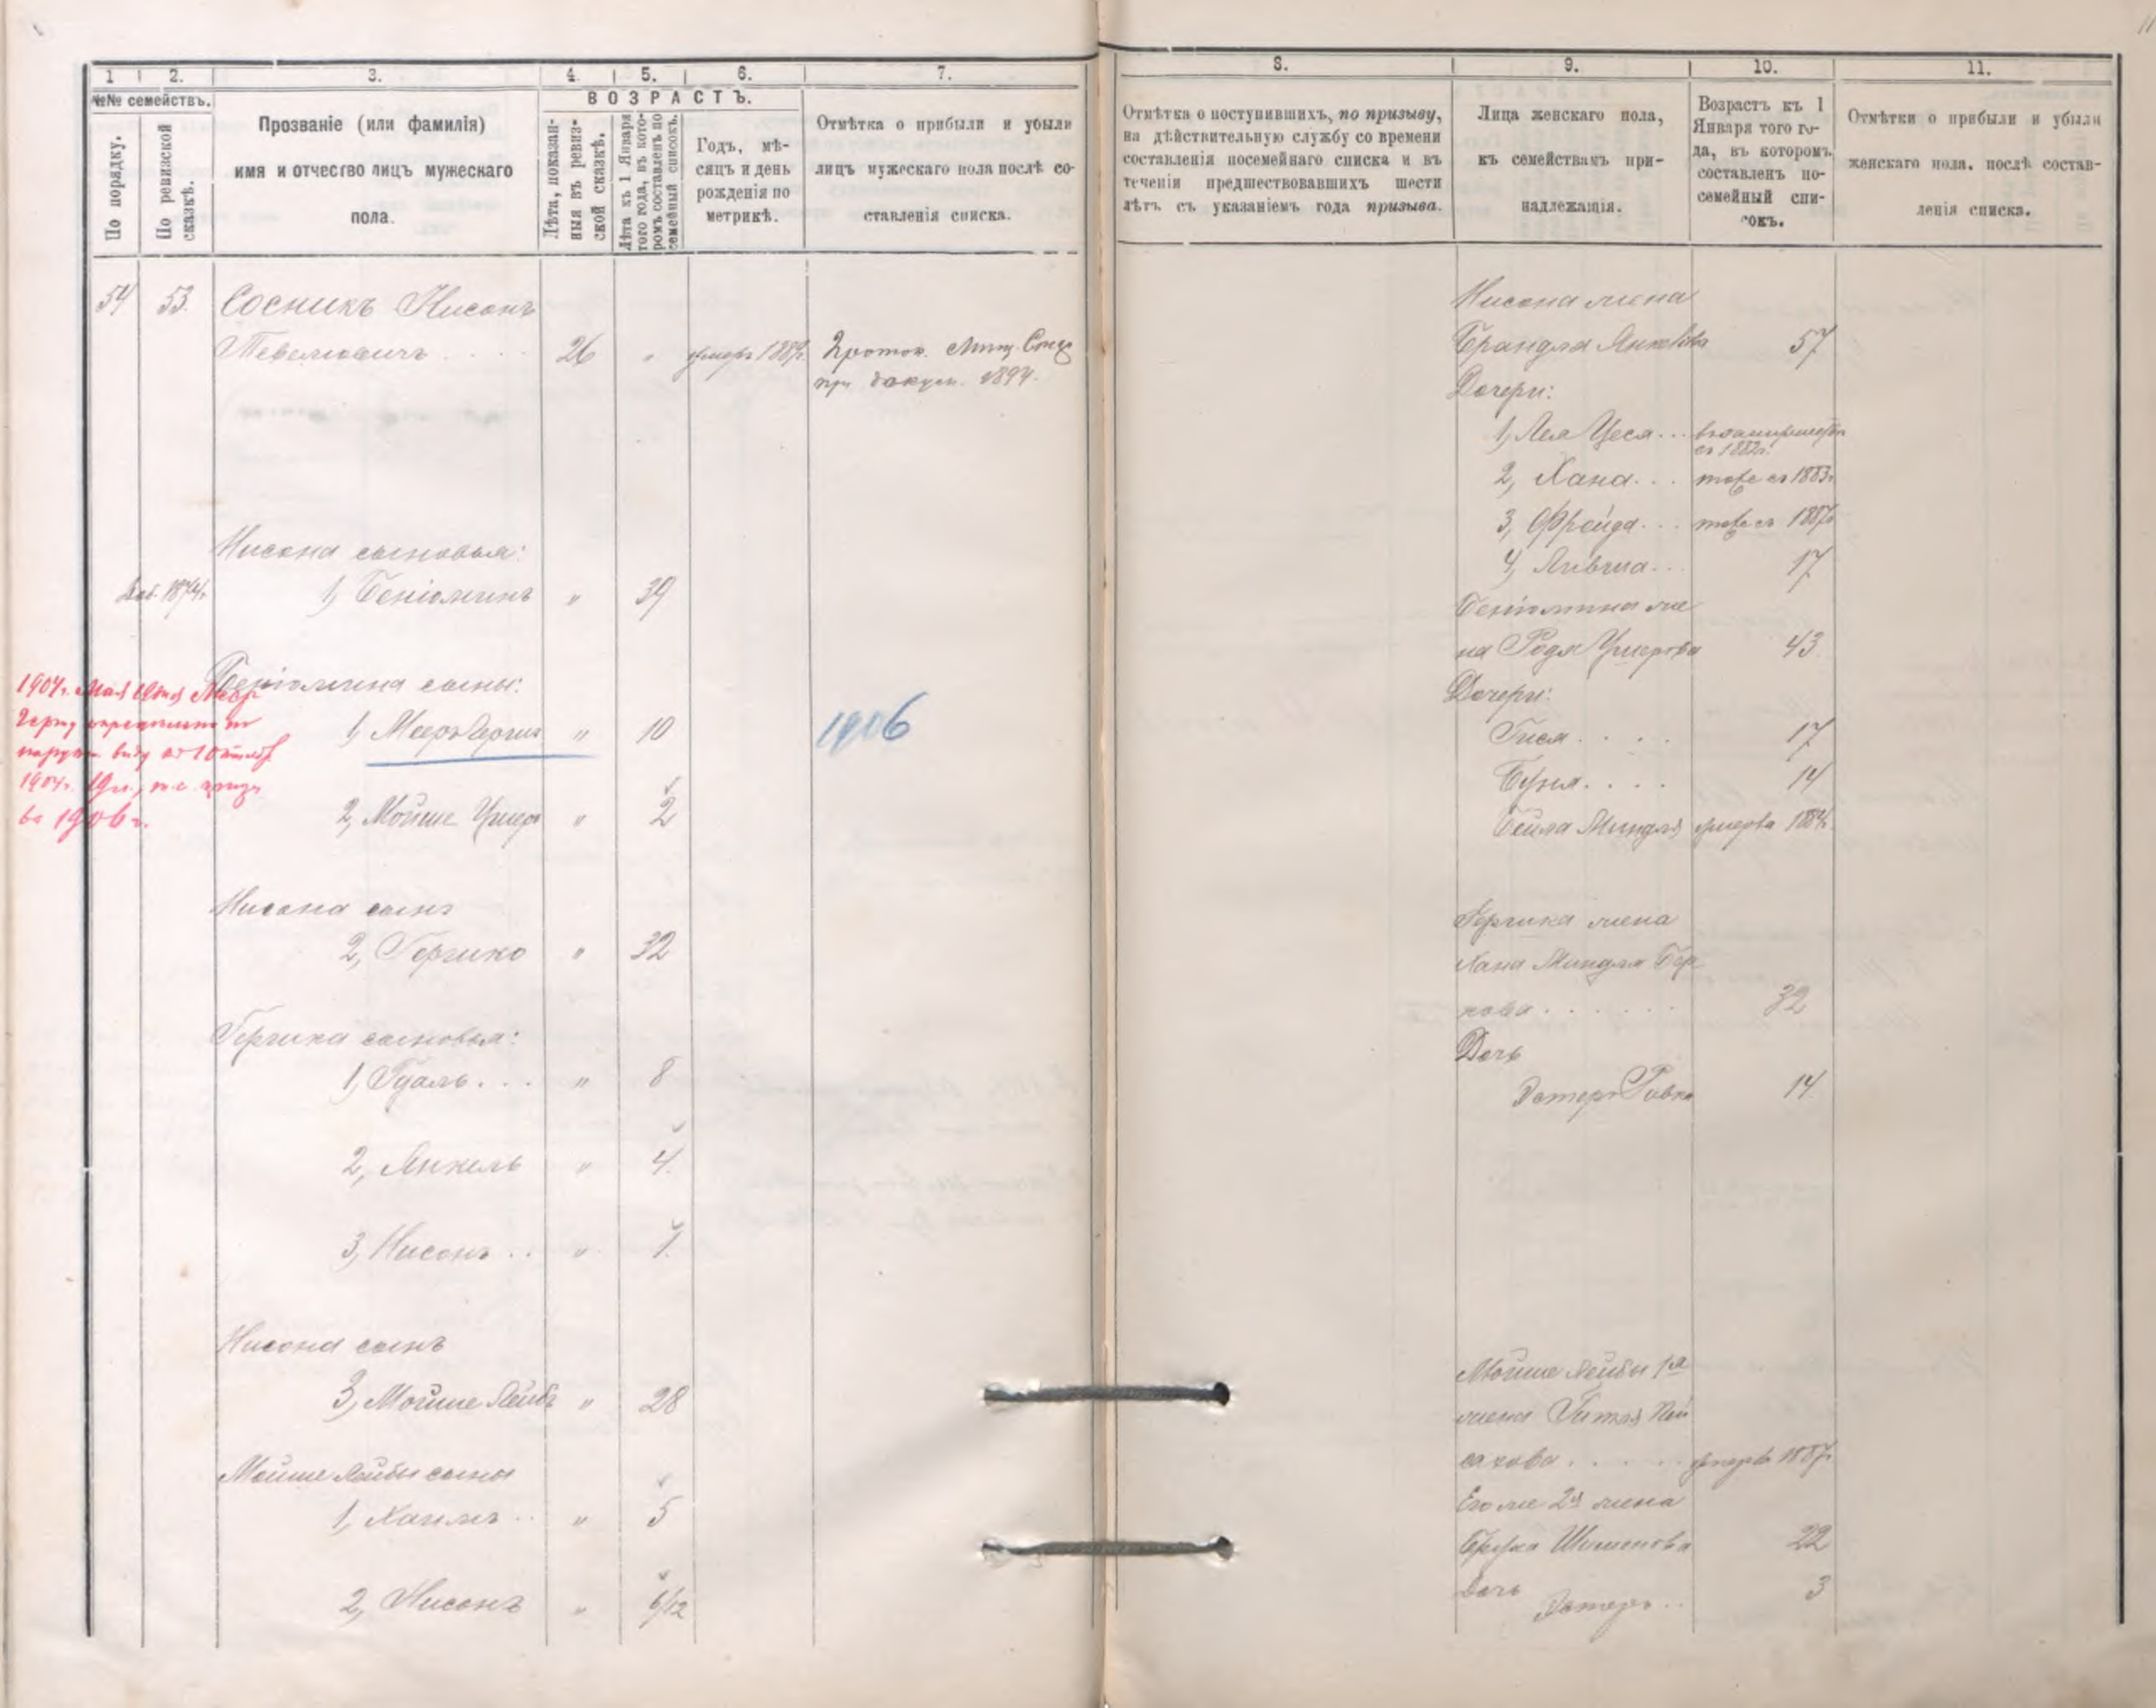 1
2.
3.
4
5.
6.
7.
№№ семействъ.
По порядку.
По ревизской
сказкѣ.
Прозваніе (или фамилія)
имя и отчество лицъ мужескаго
пола.
ВОЗРАСТЪ.
Лѣта, показан-
ныя въ ревиз-
ской сказкѣ.
Лѣта къ 1 Января
того года, въ кото-
ромъ составленъ по
семейный списокъ.
Годъ, мѣ-
сяцъ и день
рожденія по
метрикѣ.
Отмѣтка о прибыли и убыли
лицъ мужескаго пола послѣ со-
ставленія списка.
54 53. Сосникъ Нисонъ
Тевелювичъ . . . . 26 " умеръ 1889г.
при докум. 1894.
Нисона сыновья:
1, Беніоминъ " 39
Беніомина сыны:
1, Мееръ " 10 1906
2, Мойше " 2
1904г.
1904г.
въ 1906г.
Нисона сынъ
2, Гершко " 32
Гершка сыновья:
1, Гдаль . . . " 8
2, Янкель " 4.
3, Нисонъ . . " 1.
Нисона сынъ
3, Мойше Лейбъ " 28
Мойше Лейбы сыны
1, Хаимъ . . " 5
2, Нисонъ " 6/12
8.
9.
10.
11.
Отмѣтка о поступившихъ, по призыву,
на дѣйствительную службу со времени
составленія посемейнаго списка и въ
теченіи предшествовавшихъ шести
лѣтъ съ указаніемъ года призыва.
Лица женскаго пола,
къ семействамъ при-
надлежащія.
Возрастъ къ 1
Января того го-
да, въ которомъ
составленъ по-
семейный спи-
сокъ.
Отмѣтки о прибыли и убыли
женскаго пола, послѣ состав-
ленія списка.
Нисона жена
Брандля Янкелева 57
Дочери:
1, Лея Цеся . . . въ замужествѣ
съ 1882г.
2, Хана . . . тоже съ 1883г.
3, Фрейда . . . тоже съ 1887г.
4, Ливша . . . 17
Беніомина же
на Родя 43
Дочери:
Гися . . . . 17
Буня . . . . 14
Бейла Миндля умерла 1884г.
Гершка жена
Хана Миндля Бер
кова . . . . . . 32
Дочь
Эстеръ Ривка 14
Мойше Лейбы 1я
жена Гитля Пей
сахова . . . . . умерла 1887г.
Его же 2я жена
Шименова 22
Дочь
Эстеръ . . 3